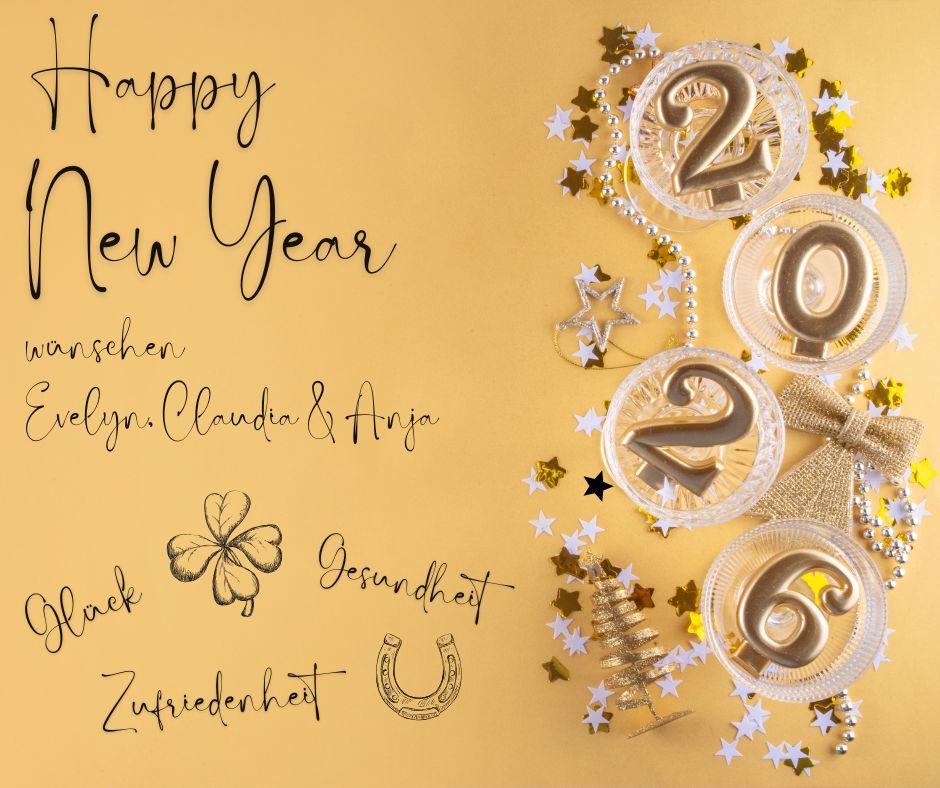 Happy
New Year
wünschen
Evelyn, Claudia & Anja
Glück
Gesundheit
Zufriedenheit
2
0
2
6